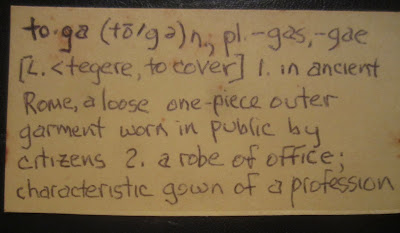 to·ga (tō′gə) n., pl. -gas, -gae
[L. < tegere, to cover] 1. in ancient
Rome, a loose one-piece outer
garment worn in public by
citizens 2. a robe of office;
characteristic gown of a profession